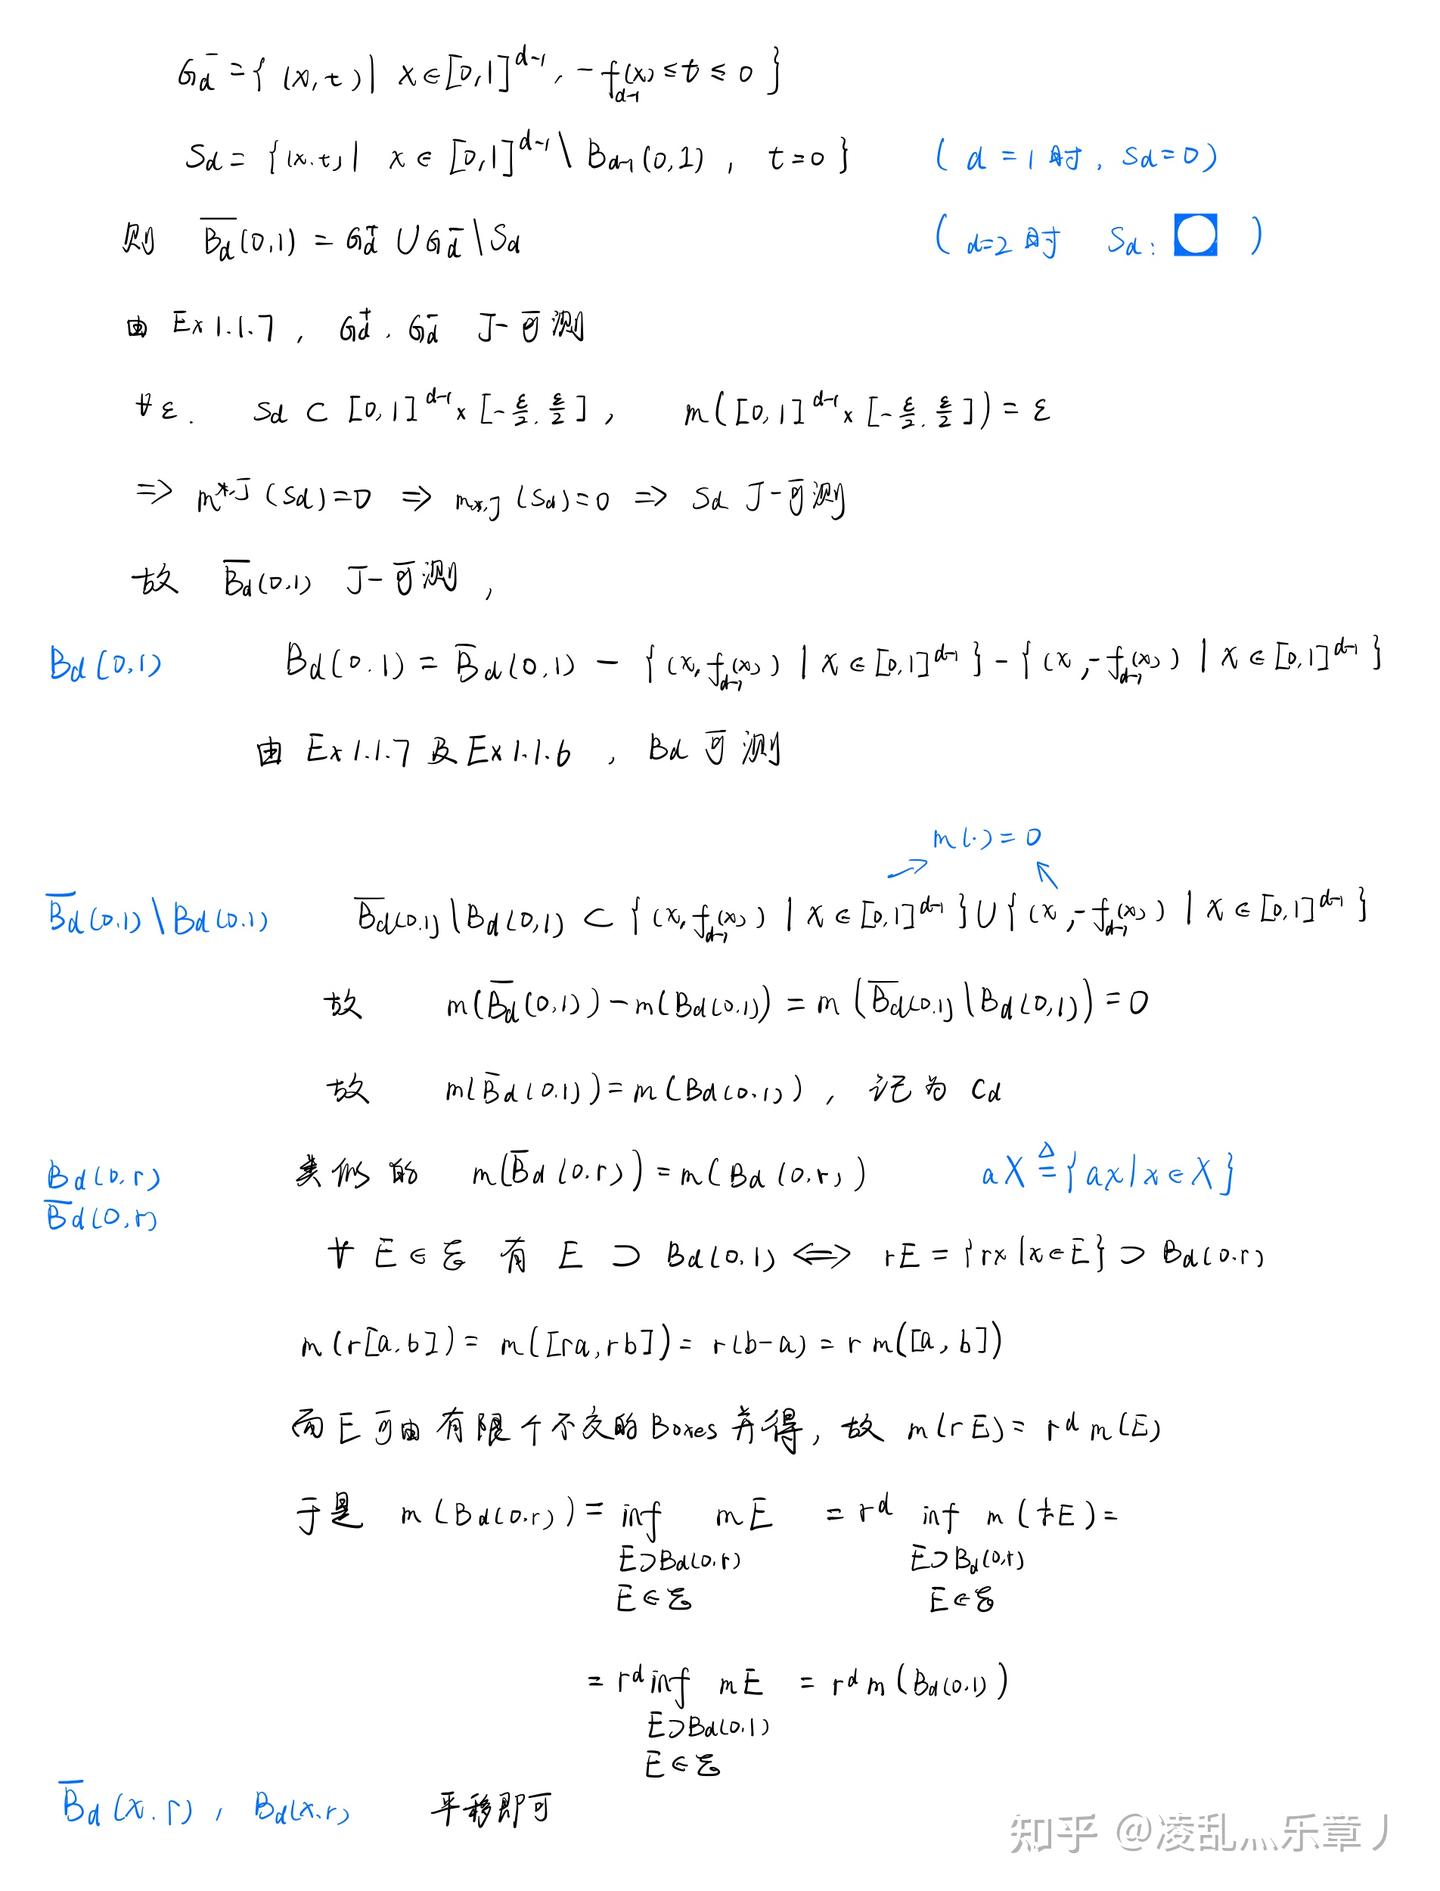 G_d^- = { (x,t) | x∈[0,1]^{d-1}, -f_{d-1}(x) ≤ t ≤ 0 }
S_d = { (x,t) | x ∈ [0,1]^{d-1} \ B_{d-1}(0,1), t=0 } ( d = 1 时, S_d=0 )
则 \overline{B_d}(0,1) = G_d^+ ∪ G_d^- \ S_d ( d=2 时 S_d: )
由 Ex 1.1.7, G_d^+, G_d^- J-可测
∀ε. S_d ⊂ [0,1]^{d-1} × [-ε/2, ε/2], m([0,1]^{d-1} × [-ε/2, ε/2]) = ε
=> m^{*,J}(S_d)=0 => m_{*,J}(S_d)=0 => S_d J-可测
故 \overline{B_d}(0,1) J-可测,
B_d(0,1) B_d(0,1) = \overline{B}_d(0,1) - {(x, f_{d-1}(x)) | x∈[0,1]^{d-1}} - {(x, -f_{d-1}(x)) | x∈[0,1]^{d-1}}
由 Ex 1.1.7 及 Ex 1.1.6, B_d 可测
m(·)=0
\overline{B}_d(0,1) \ B_d(0,1) \overline{B}_d(0,1) \ B_d(0,1) ⊂ {(x, f_{d-1}(x)) | x∈[0,1]^{d-1}} ∪ {(x, -f_{d-1}(x)) | x∈[0,1]^{d-1}}
故 m(\overline{B_d}(0,1)) - m(B_d(0,1)) = m(\overline{B}_d(0,1) \ B_d(0,1)) = 0
故 m(\overline{B}_d(0,1)) = m(B_d(0,1)), 记为 C_d
B_d(0,r) 类似的 m(\overline{B}_d(0,r)) = m(B_d(0,r)) aX ≜ {ax | x∈X}
\overline{B}_d(0,r)
∀ E∈ℰ 有 E ⊃ B_d(0,1) <=> rE = {rx | x∈E} ⊃ B_d(0,r)
m(r[a,b]) = m([ra,rb]) = r(b-a) = r m([a,b])
而 E 可由 有限个不交的 Boxes 并得, 故 m(rE) = r^d m(E)
于是 m(B_d(0,r)) = inf mE = r^d inf m(1/r E) =
E⊃B_d(0,r) E⊃B_d(0,r)
E∈ℰ E∈ℰ
= r^d inf mE = r^d m(B_d(0,1))
E⊃B_d(0,1)
E∈ℰ
\overline{B}_d(x,r), B_d(x,r) 平移即可
知乎 @凌乱灬乐章丿